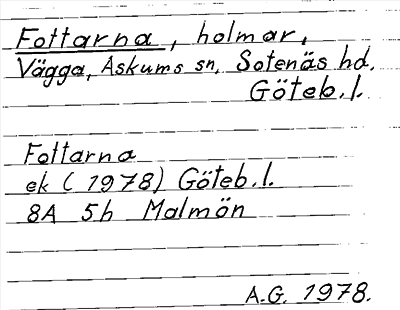 Fottarna, holmar,
Vägga, Askums sn, Sotenäs hd.
Göteb.l.
Fottarna
ek (1978) Göteb.l.
8A 5h Malmön
A.G. 1978.